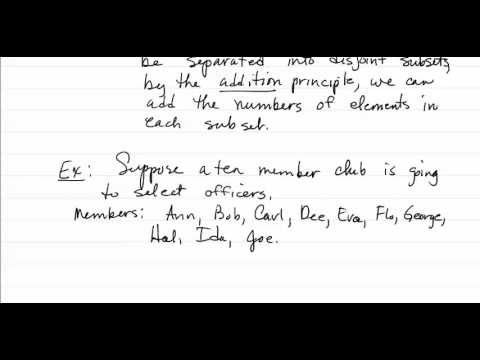 be separated into disjoint subsets,
by the addition principle, we can
add the numbers of elements in
each subset.
Ex: Suppose a ten member club is going
to select officers.
Members: Ann, Bob, Carl, Dee, Eva, Flo, George,
Hal, Ida, Joe.